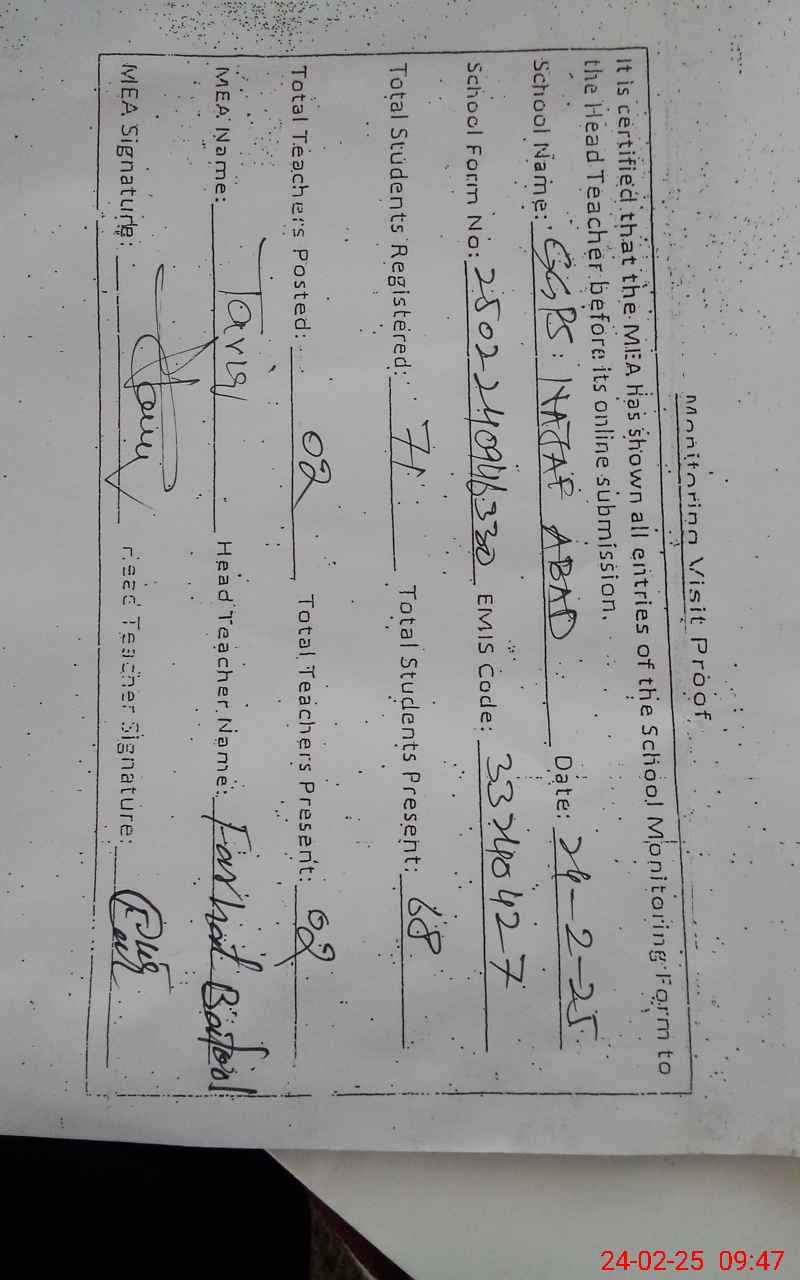 Monitoring Visit Proof
It is certified that the MEA has shown all entries of the School Monitoring Form to
the Head Teacher before its online submission.
School Name: GGPS: NAJAF ABAD Date: 24-2-25
School Form No: 2502240946330 EMIS Code: 33240427
Total Students Registered: 71 Total Students Present: 68
Total Teachers Posted: 02 Total Teachers Present: 02
MEA Name: Tariq Head Teacher Name: Farhat Batool
MEA Signature: Head Teacher Signature:
24-02-25 09:47